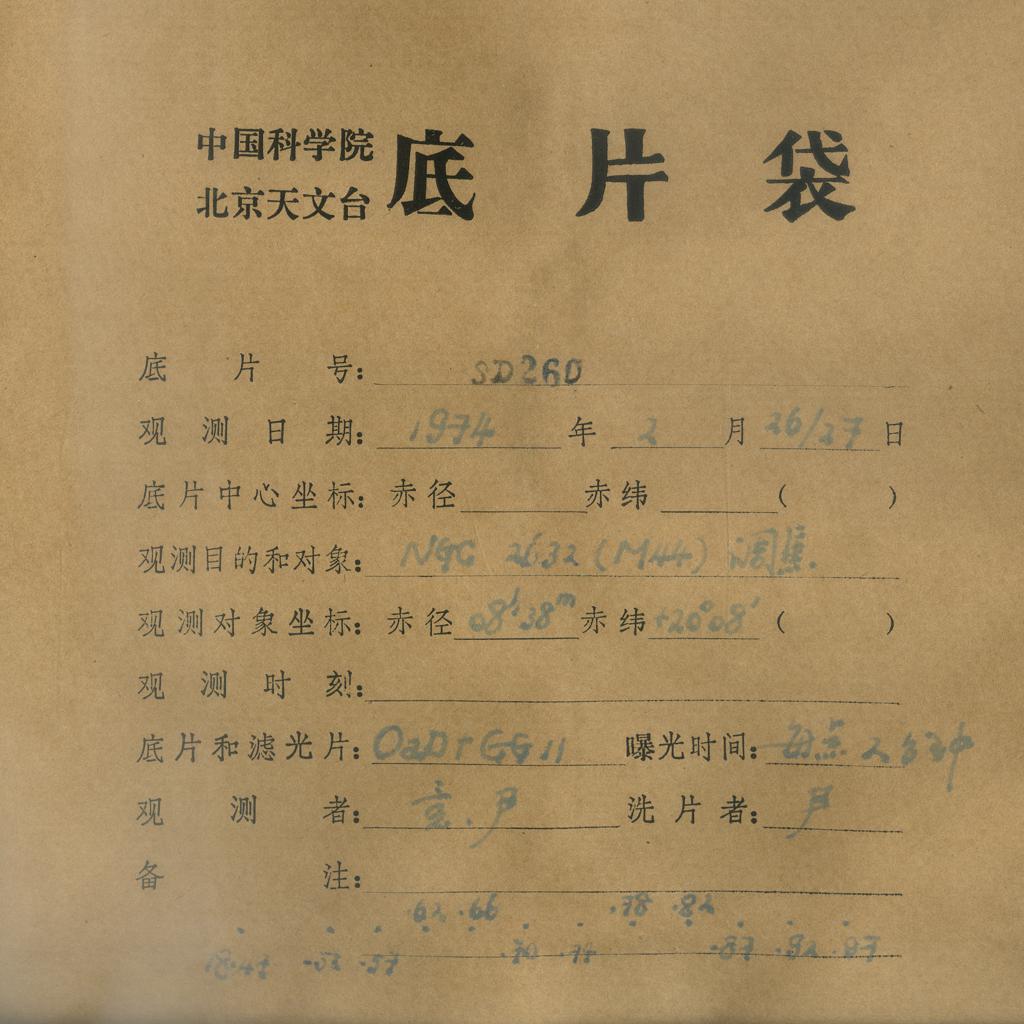 中国科学院
北京天文台
底片袋
底片号: SD260
观测日期: 1974 年 2 月 26/27 日
底片中心坐标: 赤径 赤纬 ( )
观测目的和对象: NGC 2632 (M44) 调焦.
观测对象坐标: 赤径 08h38m 赤纬 +20°08′ ( )
观测时刻:
底片和滤光片: OaD+GG11 曝光时间: 每点 2分钟
观测者: 尹 洗片者: 尹
备注:
.62 .66 .78 .82
.52 .57 .70 .74 .87 .92